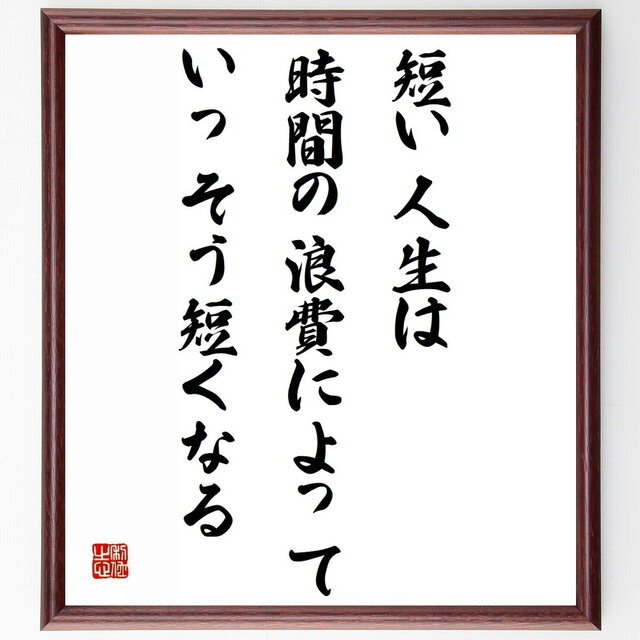 短い人生は
時間の浪費によって
いっそう短くなる